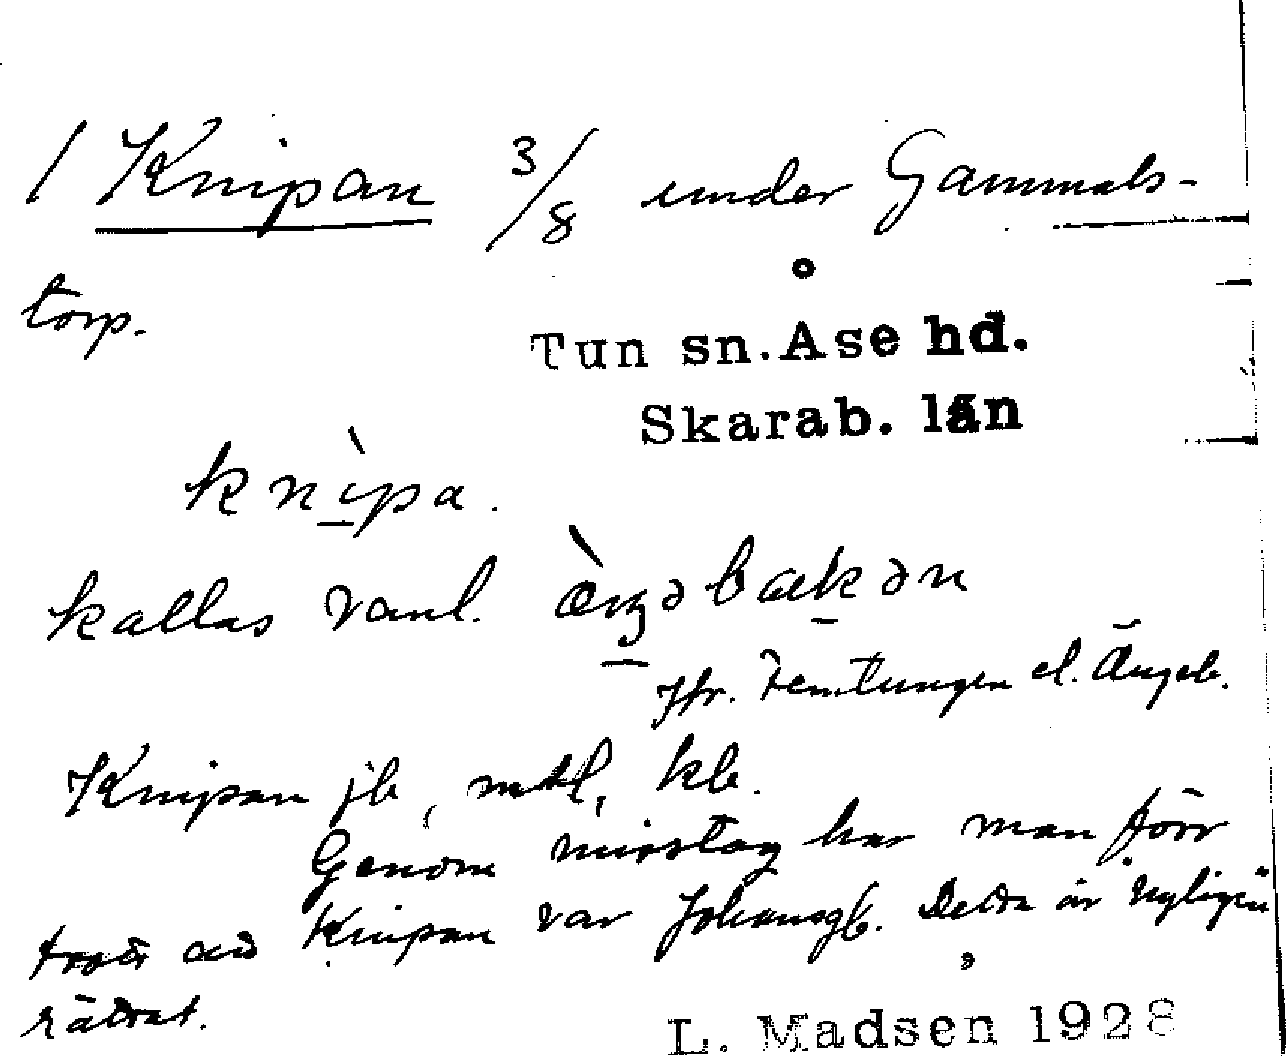 1 Knipan 3/8 under Gammals-
torp.
Tun sn. Åse hd.
Skarab. län
knìpa.
kallas vanl. æ̀ŋəbakən
Jfr. Femtungen el. Ängeb.
Knipan jb, mtl, kb.
Genom misstag har man förr
trott att Knipan var Johansgb. Detta är nyligen
rättat.
L. Madsen 1928